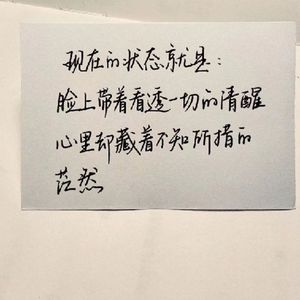 现在的状态就是：
脸上带着看透一切的清醒
心里却藏着不知所措的
茫然